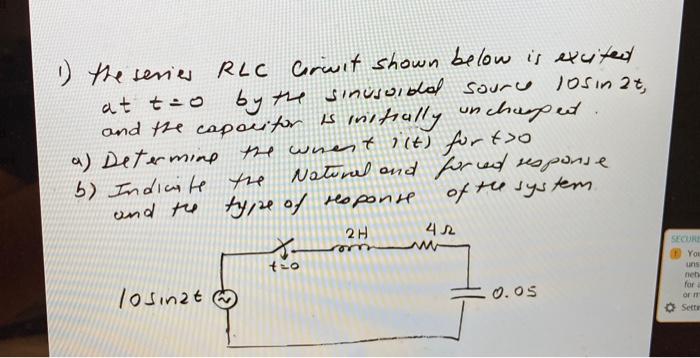 1) the series RLC Circuit shown below is excited
at t=0 by the sinusoidal source 10sin2t,
and the capacitor is initially uncharged.
a) Determine the current i(t) for t>0
b) Indicate the Natural and forced response
and the type of response of the system
2H 4Ω
t=0
10sin2t
0.05
SECURE
You
uns
netw
for a
or m
Setti